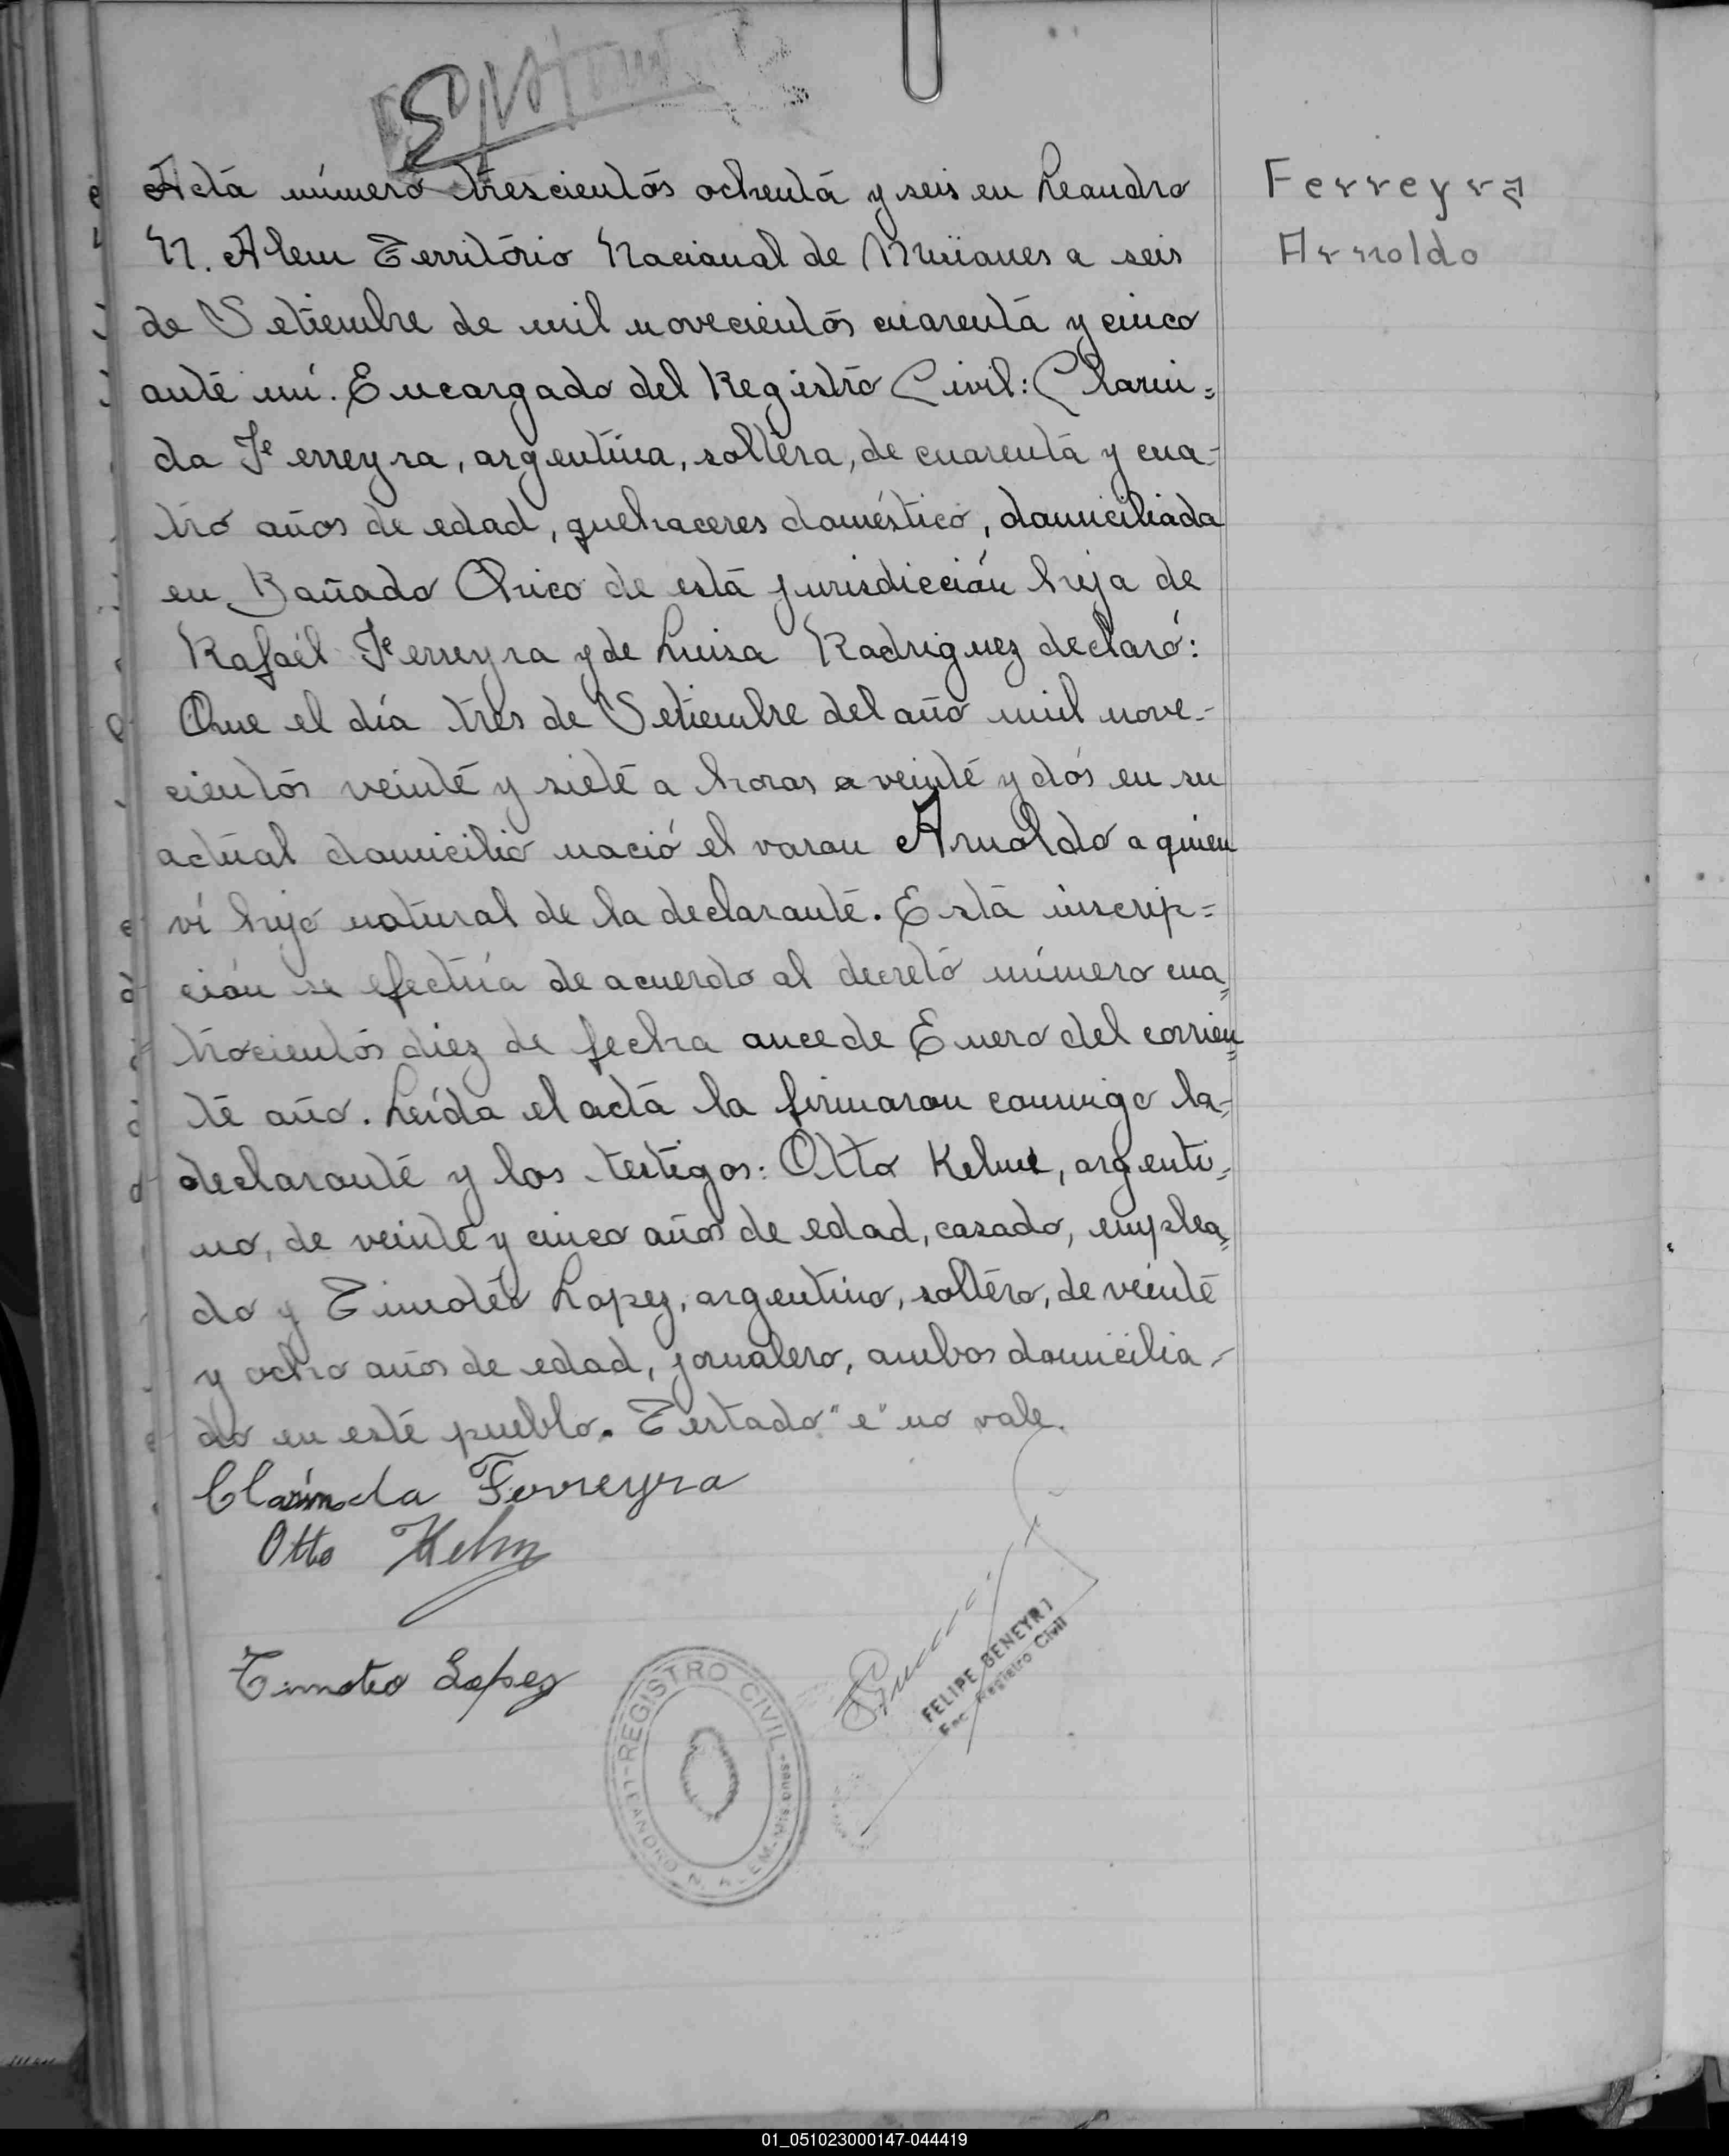 Acta número trescientos ochenta y seis en Leandro
N. Alem Territorio Nacional de Misiones a seis
de Setiembre de mil novecientos cuarenta y cinco
ante mí. Encargado del Registro Civil: Clarin=
da Ferreyra, argentina, soltera, de cuarenta y cua-
tro años de edad, quehaceres doméstico, domiciliada
en Bañado Chico de esta jurisdicción hija de
Rafaél Ferreyra y de Luisa Rodriguez declaró:
Que el día tres de Setiembre del año mil nove-
cientos veinte y siete a horas e veinte y dós en su
actual domicilio nació el varon Arnoldo a quien
ví hijo natural de la declarante. Esta inscrip=
ción se efectúa de acuerdo al decreto número cua=
trocientos diez de fecha once de Enero del corrien=
te año. Leída el acta la firmaron conmigo la-
declarante y los testigos: Otto Kelm, argenti=
no, de veinte y cinco años de edad, casado, emplea=
do y Timoteo Lopez, argentino, soltero, de veinte
y ocho años de edad, jornalero, ambos domicilia-
do en este pueblo. Testado "e" no vale.
Clarinda Ferreyra
Otto Kelm
Timoteo Lopez
FELIPE BENEYRI
Enc. Registro Civil
REGISTRO CIVIL
LEANDRO N. ALEM - Misiones
Ferreyra
Arnoldo
01_051023000147-044419